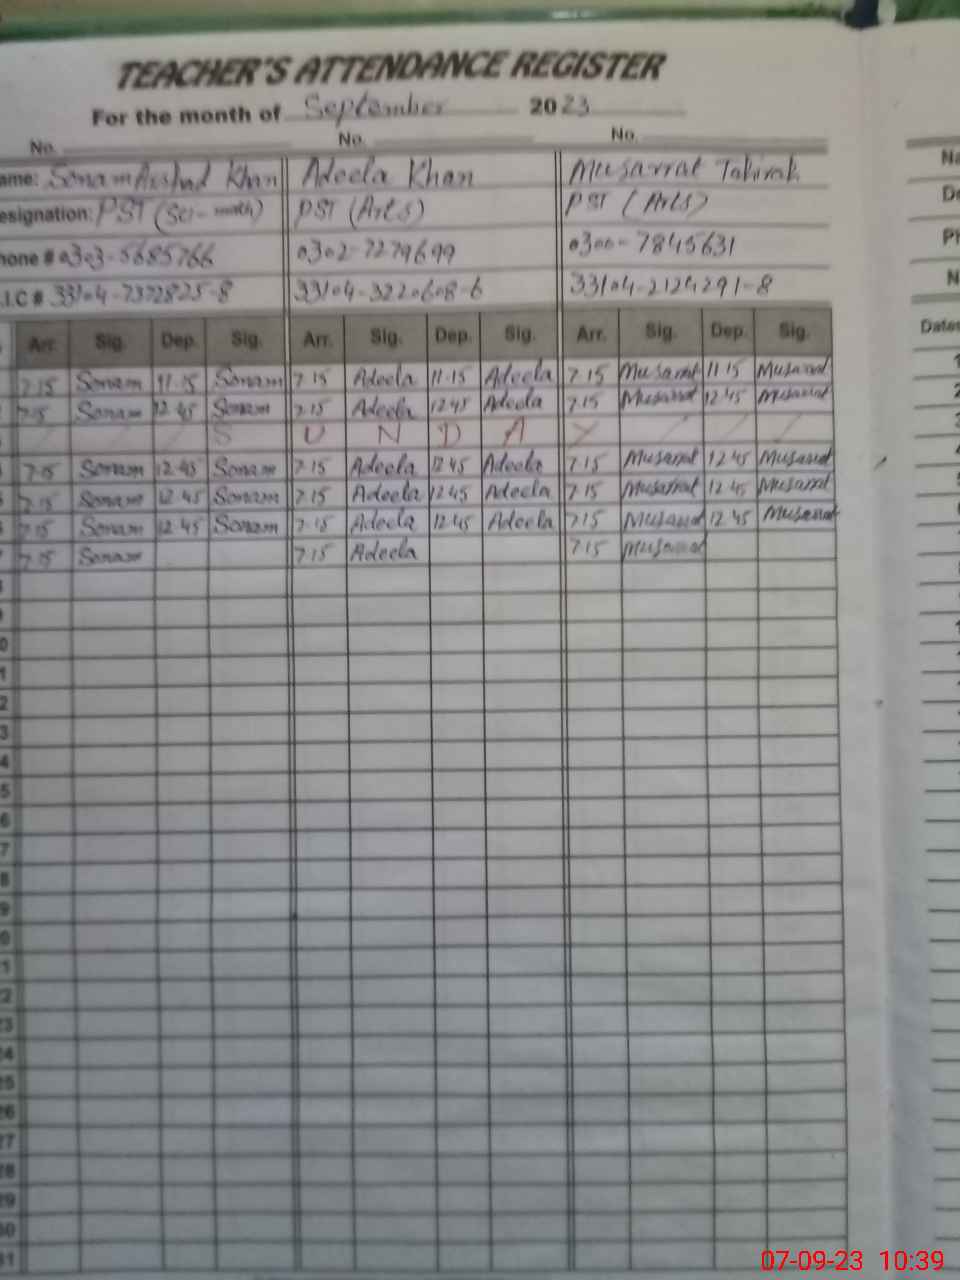 TEACHER'S ATTENDANCE REGISTER
For the month of September 2023
No. No. No.
ame: Sonam Arshad Khan Adeela Khan Musarrat Tahirah Na
esignation: PST (Sci-math) PST (Arts) PST (Arts) De
hone # 0303-5685766 0302-7279699 0300-7845631 Ph
.I.C # 33104-7372825-8 33104-3220608-6 33104-2124291-8 N
Arr. Sig. Dep. Sig. Arr. Sig. Dep. Sig. Arr. Sig. Dep. Sig. Dates
7.15 Sonam 11.15 Sonam 7.15 Adeela 11.15 Adeela 7.15 Musarrat 11.15 Musarrat 1
7.15 Sonam 12.45 Sonam 7.15 Adeela 12.45 Adeela 7.15 Musarrat 12.45 Musarrat 2
S U N D A Y 3
7.15 Sonam 12.45 Sonam 7.15 Adeela 12.45 Adeela 7.15 Musarrat 12.45 Musarrat
7.15 Sonam 12.45 Sonam 7.15 Adeela 12.45 Adeela 7.15 Musarrat 12.45 Musarrat
7.15 Sonam 12.45 Sonam 7.15 Adeela 12.45 Adeela 7.15 Musarrat 12.45 Musarrat
7.15 Sonam 7.15 Adeela 7.15 Musarrat
8
9
0
1
2
3
4
5
6
7
8
9
0
1
22
23
24
25
26
27
28
29
30
31
07-09-23 10:39